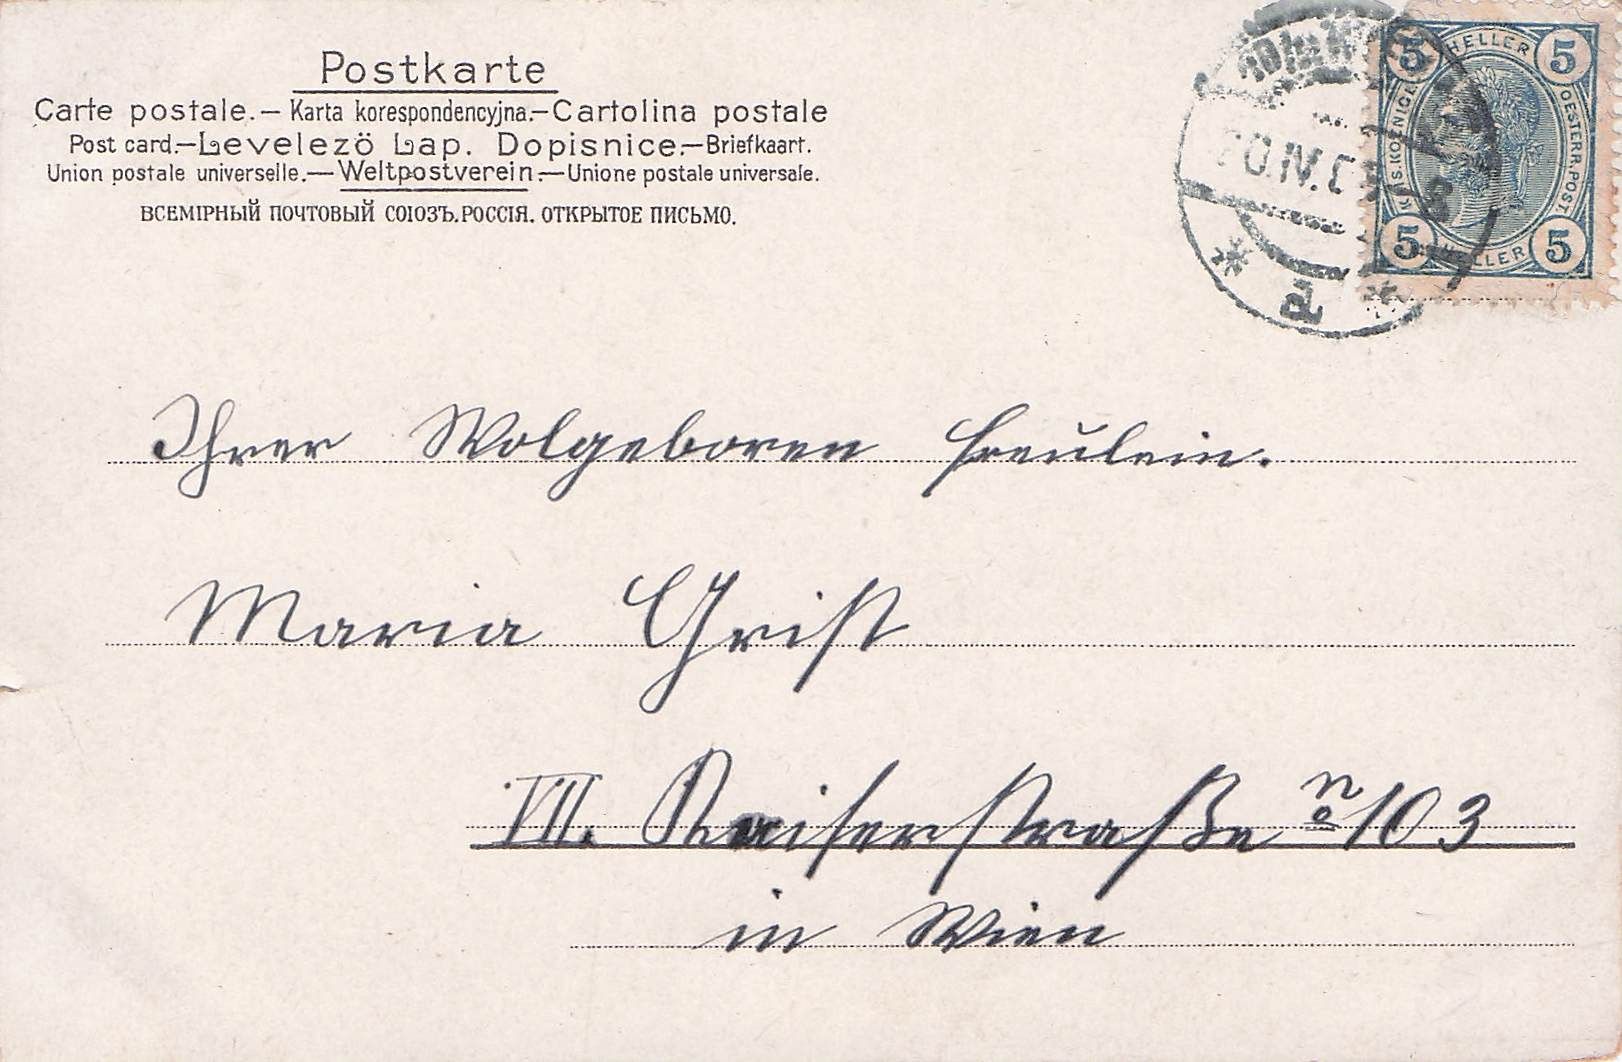 Postkarte
Carte postale.— Karta korespondencyjna.—Cartolina postale
Post card.—Levelező Lap. Dopisnice.—Briefkaart.
Union postale universelle.—Weltpostverein.—Unione postale universale.
ВСЕМІРНЫЙ ПОЧТОВЫЙ СОЮЗЪ.РОССІЯ. ОТКРЫТОЕ ПИСЬМО.
5 HELLER 5
OESTERR. POST
5 HELLER 5
IV
Ihrer Wolgeboren Freulein.
Maria Grist
VII. Kaiserstraße no 103
in Wien